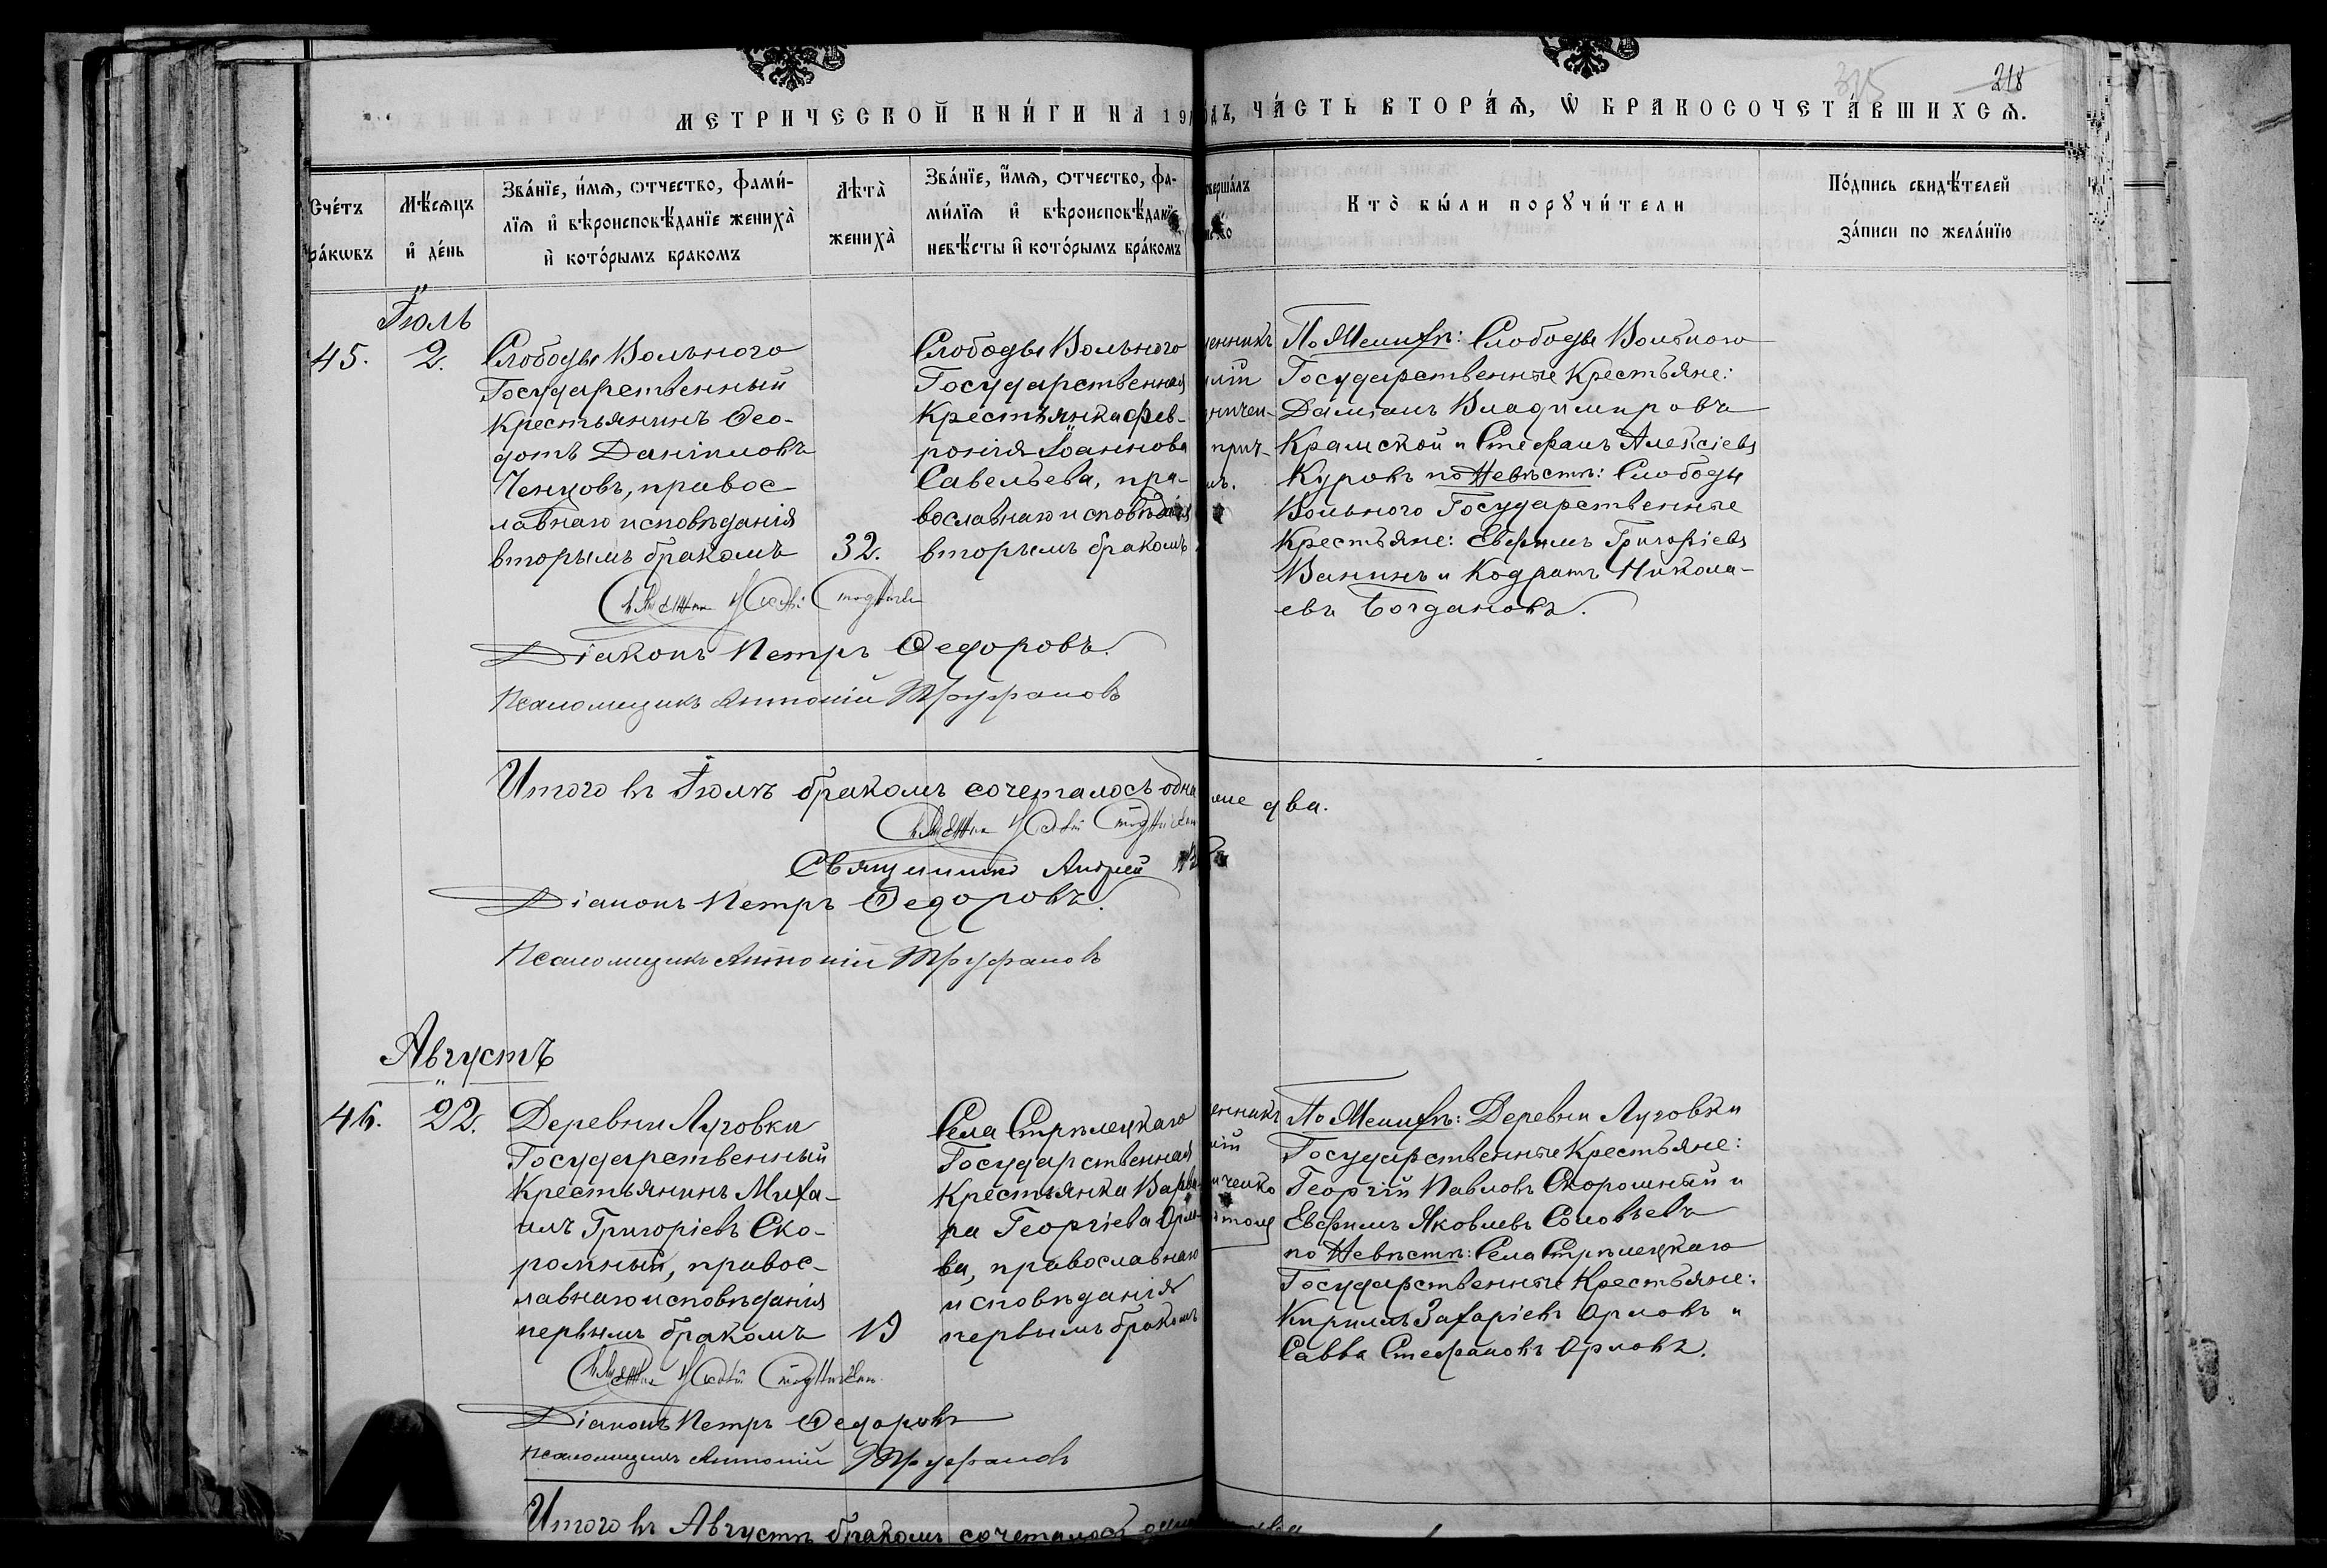 315 218
МЕТРИЧЕСКОЙ КНИ́ГИ НА 19
ДЪ, ЧА́СТЬ ВТОРА́Ѧ, Ѡ҆ БРАКОСОЧЕТА́ВШИХСѦ.
Сче́тъ
ра́кѡвъ
Мѣ́сѧцъ
и҆ де́нь
Зва́нїе, и҆́мѧ, ѻтчество, фами́-
лїѧ и҆ вѣроисповѣ́данїе жениха̀
и҆ кото́рымъ бракомъ
Лѣта̀
жениха̀
Зва́нїе, и҆́мѧ, ѻтчество, фа-
ми́лїѧ и҆ вѣроисповѣ́данїе
невѣ́сты и҆ кото́рымъ бра́комъ
верша́лъ
Кто̀ бы́ли порꙋчи́тели
По́дпись свидѣ́телей
за́писи по жела́нїю
Іюль
45. 2.
Слободы Вольнаго
Государственный
Крестьянинъ Ѳео-
дотъ Даніиловъ
Ченцовъ, правос-
лавнаго исповѣданія
вторымъ бракомъ 32.
Слободы Вольнаго
Государственная
Крестьянка Фев-
ронія Іоаннова
Савельева, пра-
вославнаго исповѣданія
вторымъ бракомъ
енникъ
По Женихѣ: Слободы Вольнаго
Государственные Крестьяне:
Даміанъ Владиміровъ
Крамской и Стефанъ Алексіевъ
Куровъ по Невѣстѣ: Слободы
Вольнаго Государственные
Крестьяне: Евфимъ Григоріевъ
Ванинъ и Кодратъ Никола-
евъ Богдановъ.
Діаконъ Петръ Ѳедоровъ.
Псаломщикъ Антоній Труфановъ
Итого въ Іюлѣ бракомъ сочеталось одна
два.
Священникъ Андрей
Діаконъ Петръ Ѳедоровъ.
Псаломщикъ Антоній Труфановъ
Августъ
46. 22.
Деревни Луговки
Государственный
Крестьянинъ Миха-
илъ Григоріевъ Ско-
ромный, правос-
лавнаго исповѣданія
первымъ бракомъ 19
Села Стрѣлецкаго
Государственная
Крестьянка Варва-
ра Георгіева Орло-
ва, православнаго
исповѣданія
первымъ бракомъ
енникъ
По Женихѣ: Деревни Луговки
Государственные Крестьяне:
Георгій Павловъ Скоромный и
Евфимъ Яковлевъ Соловьевъ
по Невѣстѣ: Села Стрѣлецкаго
Государственные Крестьяне:
Кириллъ Захаріевъ Орловъ и
Савва Стефановъ Орловъ.
Діаконъ Петръ Ѳедоровъ
Псаломщикъ Антоній Труфановъ
Итого въ Августѣ бракомъ сочеталось